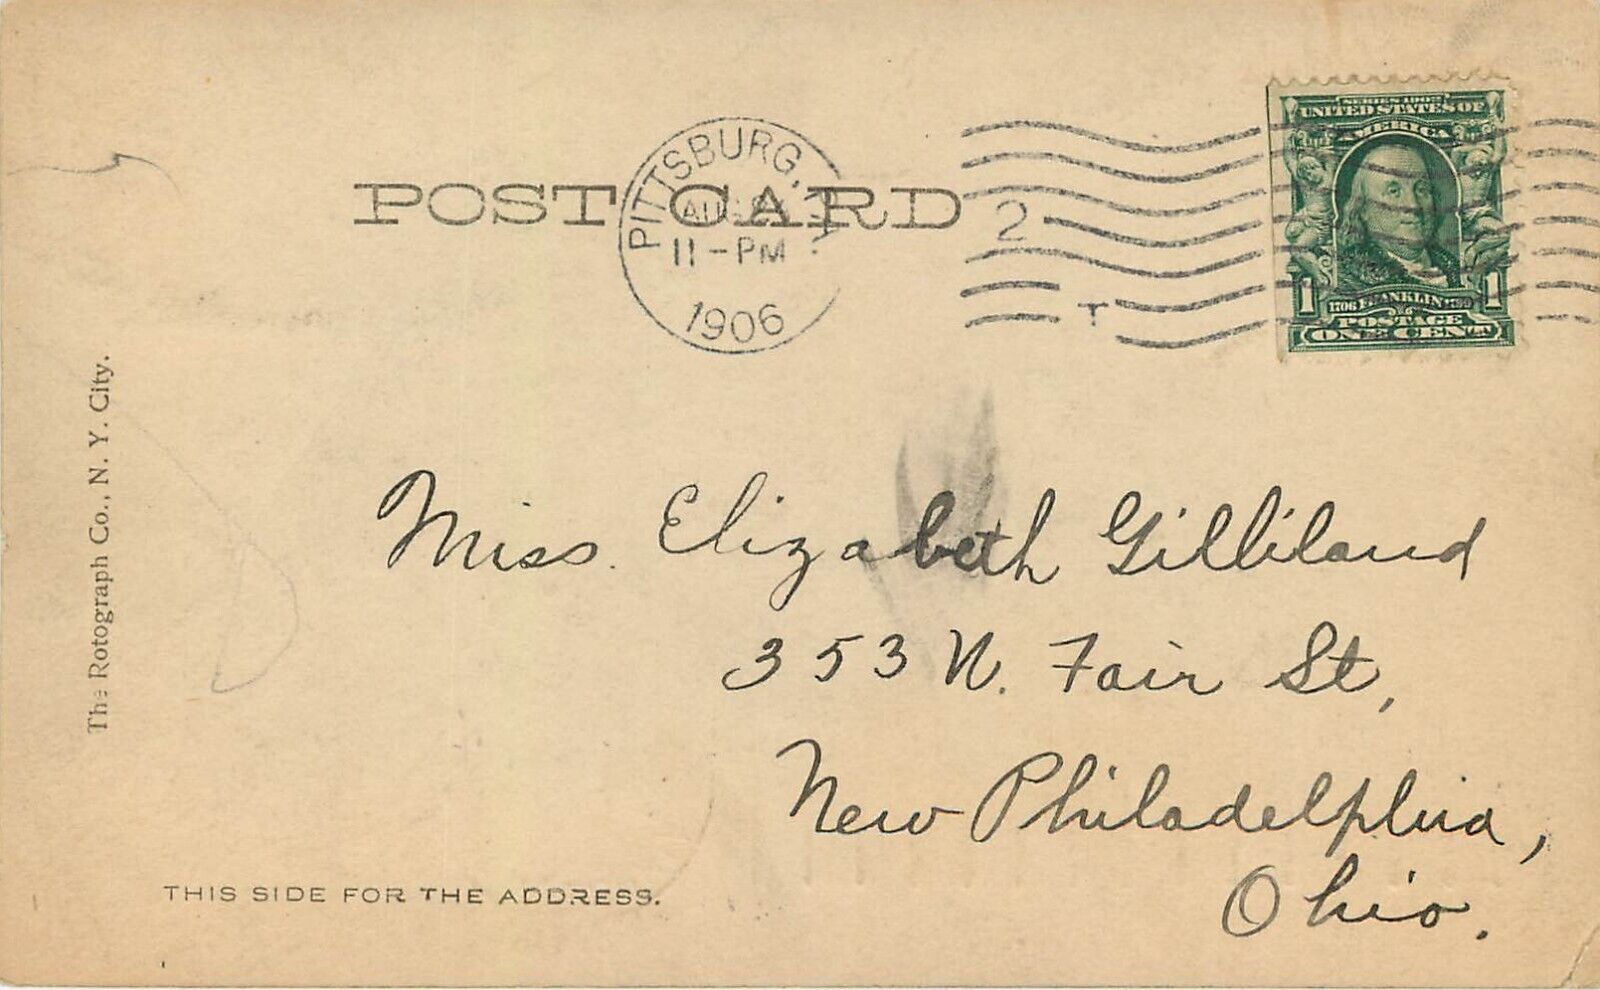 POST CARD
PITTSBURG, PA.
11-PM
1906
2
T
SERIES 1902
UNITED STATES OF
AMERICA
1 1706 FRANKLIN 1790 1
POSTAGE
ONE CENT
The Rotograph Co., N. Y. City.
Miss. Elizabeth Gilliland
353 N. Fair St,
New Philadelphia,
Ohio.
THIS SIDE FOR THE ADDRESS.